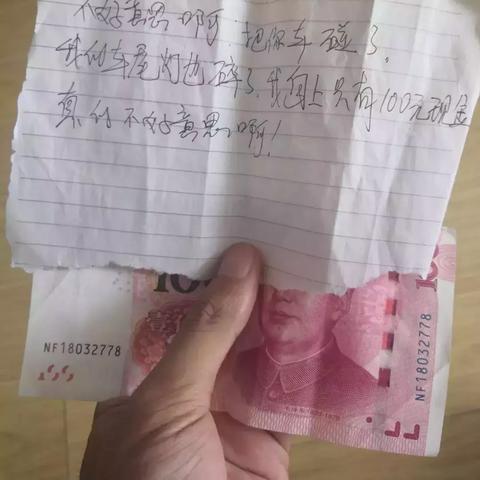 不好意思啊，把你车碰了.
我的车尾灯也碎了.我身上只有100元现金
真的不好意思啊！
100
NF18032778
NF18032778